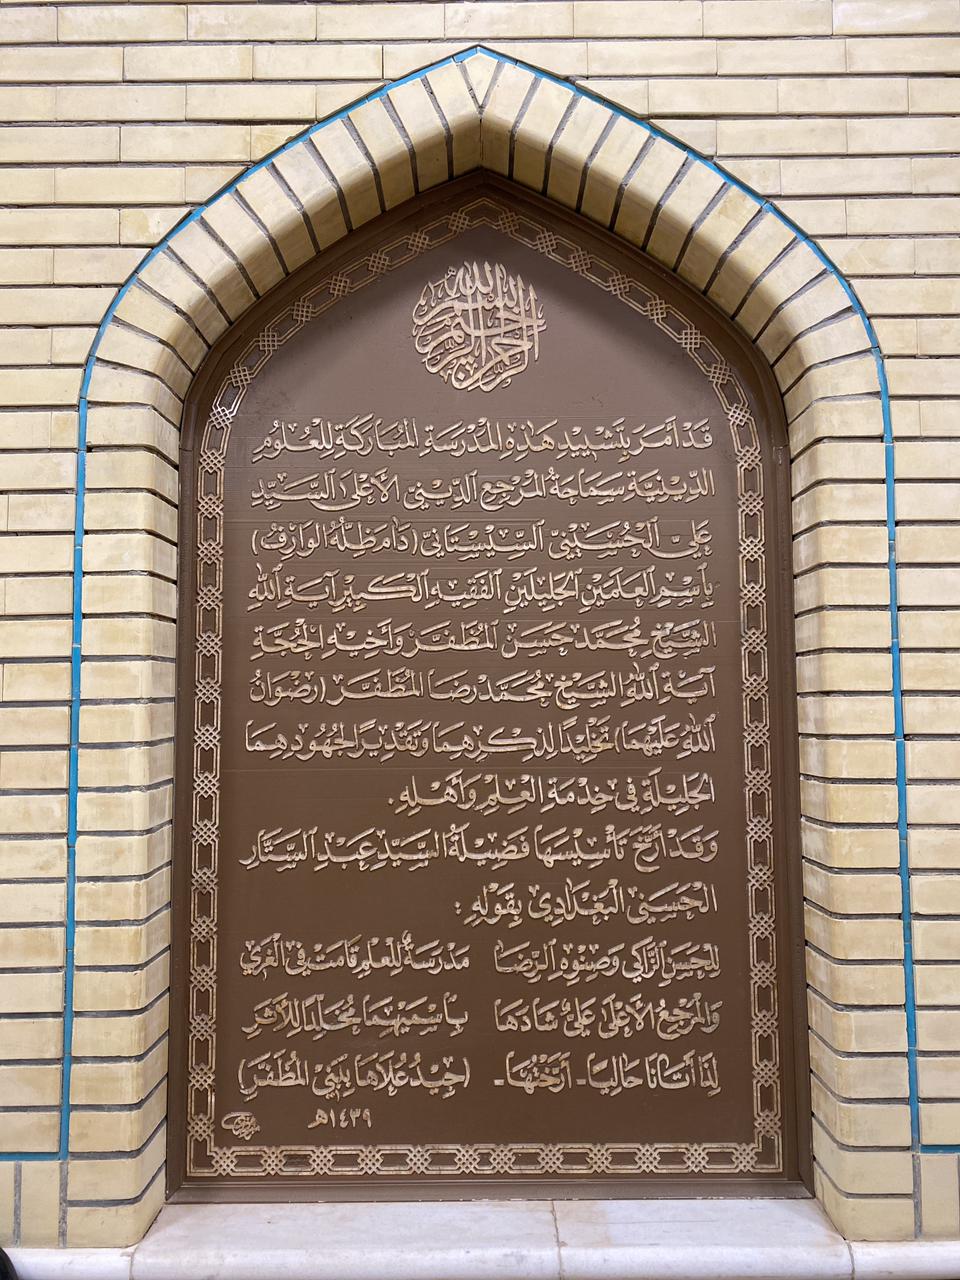 بسم الله الرحمن الرحيم
قَدْ أَمَرَ بِتَشْيِيدِ هَذِهِ المَدْرَسَةِ المُبَارَكَةِ لِلْعُلُومِ
الدِّينِيَّةِ سَمَاحَةُ المَرْجِعِ الدِّينِيِّ الأَعْلَى السَّيِّدِ
عَلِيِّ الْحُسَيْنِيِّ السِّيسْتَانِيِّ (دَامَ ظِلُّهُ الوَارِفُ)
بِاسْمِ العَلَمَيْنِ الجَلِيلَيْنِ الفَقِيهِ الكَبِيرِ آيَةِ اللهِ
الشَّيْخِ مُحَمَّد حَسَن المُظَفَّر وَأَخِيهِ الحُجَّةِ
آيَةِ اللهِ الشَّيْخِ مُحَمَّد رِضَا المُظَفَّر (رِضْوَانُ
اللهِ عَلَيْهِمَا) تَخْلِيدًا لِذِكْرِهِمَا وَتَقْدِيرًا لِجُهُودِهِمَا
الجَلِيلَةِ فِي خِدْمَةِ العِلْمِ وَأَهْلِهِ.
وَقَدْ أَرَّخَ تَأْسِيسَهَا فَضِيلَةُ السَّيِّدِ عَبْدِ السَّتَّارِ
الحَسَنِي البَغْدَادِي بِقَوْلِهِ :
لِلْحَسَنِ الزَّاكِي وَصِنْوِهِ الرِّضَا مَدْرَسَةٌ لِلْعِلْمِ قَامَتْ فِي الغَرِي
وَالمَرْجِعُ الأَعْلَى عَلِيٌّ شَادَهَا بِاسْمِهِمَا مُخَلِّدًا لِلأَثَرِ
لِذَا أَتَانَا حَالِيًا - أَرَّخْتُهَا - (جِيدُ عُلَاهَا بِبَنِي المُظَفَّرِ)
١٤٣٩هـ